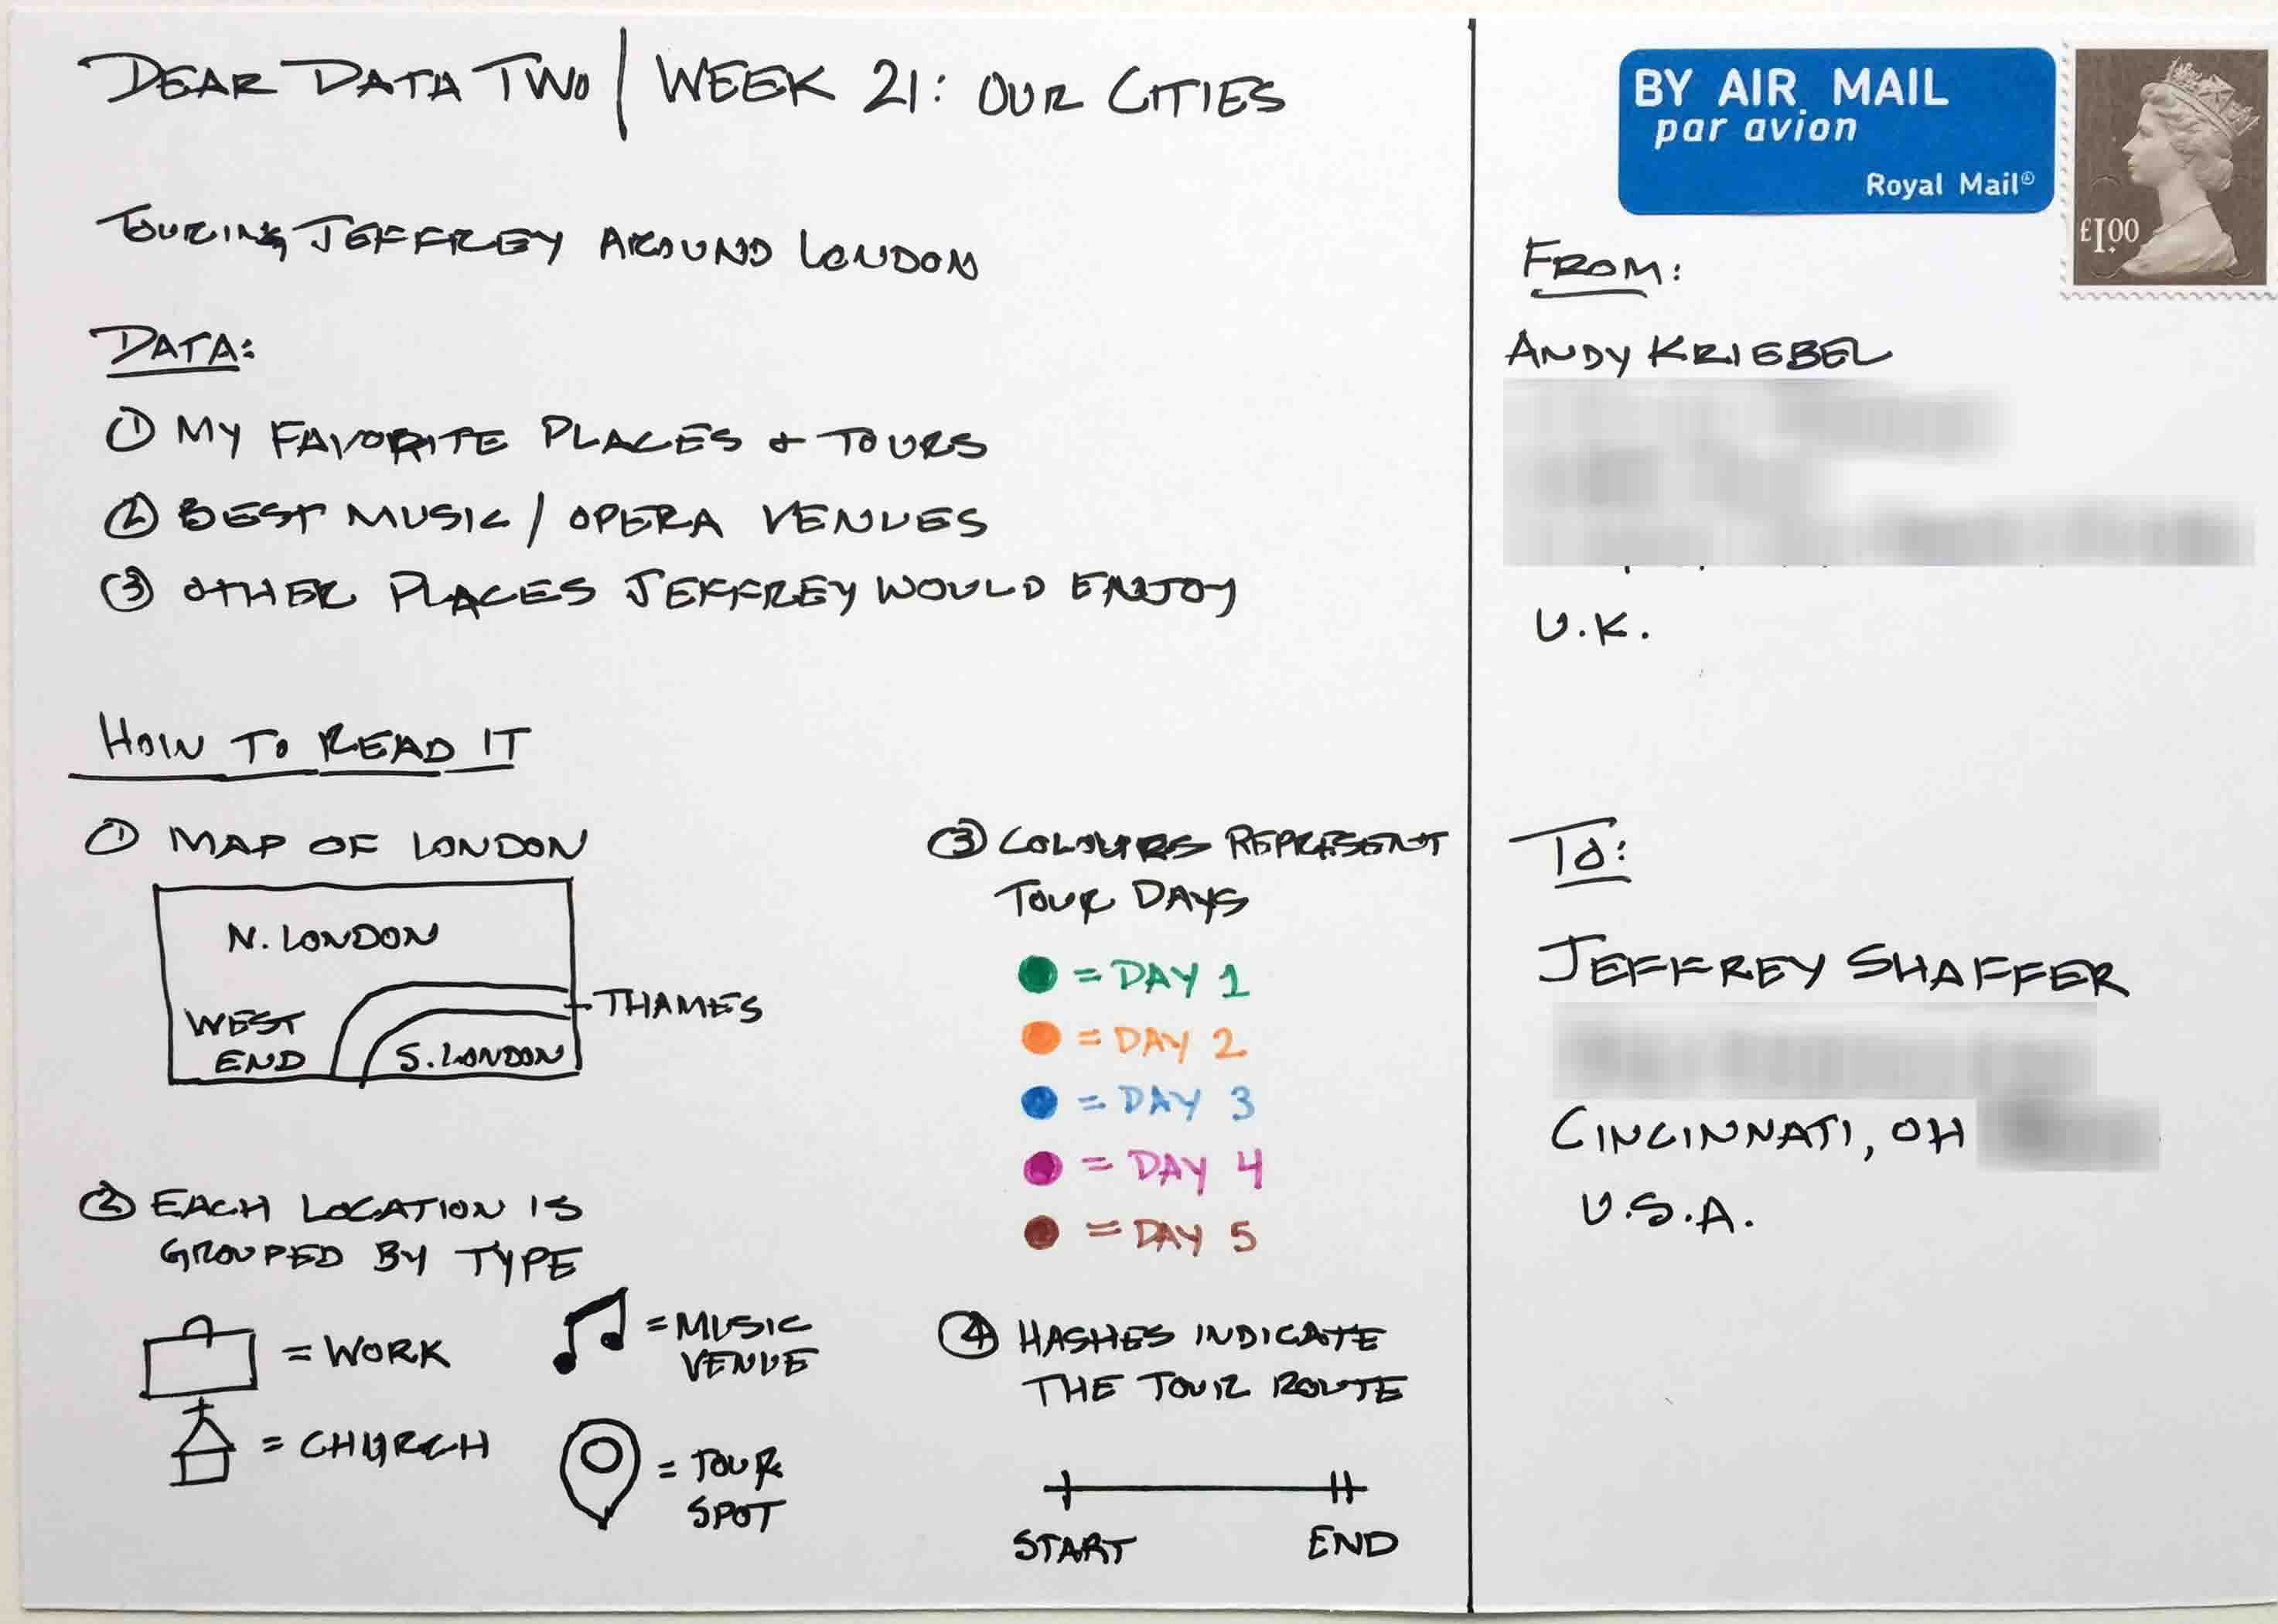 DEAR DATA TWO | WEEK 21: OUR CITIES
TOURING JEFFREY AROUND LONDON
DATA:
① MY FAVORITE PLACES + TOURS
② BEST MUSIC / OPERA VENUES
③ OTHER PLACES JEFFREY WOULD ENJOY
HOW TO READ IT
① MAP OF LONDON
N. LONDON
WEST
END
S. LONDON
THAMES
② EACH LOCATION IS
GROUPED BY TYPE
= WORK
= CHURCH
= MUSIC
VENUE
= TOUR
SPOT
③ COLOURS REPRESENT
TOUR DAYS
= DAY 1
= DAY 2
= DAY 3
= DAY 4
= DAY 5
④ HASHES INDICATE
THE TOUR ROUTE
START END
BY AIR MAIL
par avion
Royal Mail
£1.00
FROM:
ANDY KRIEBEL
U.K.
TO:
JEFFREY SHAFFER
CINCINNATI, OH
U.S.A.